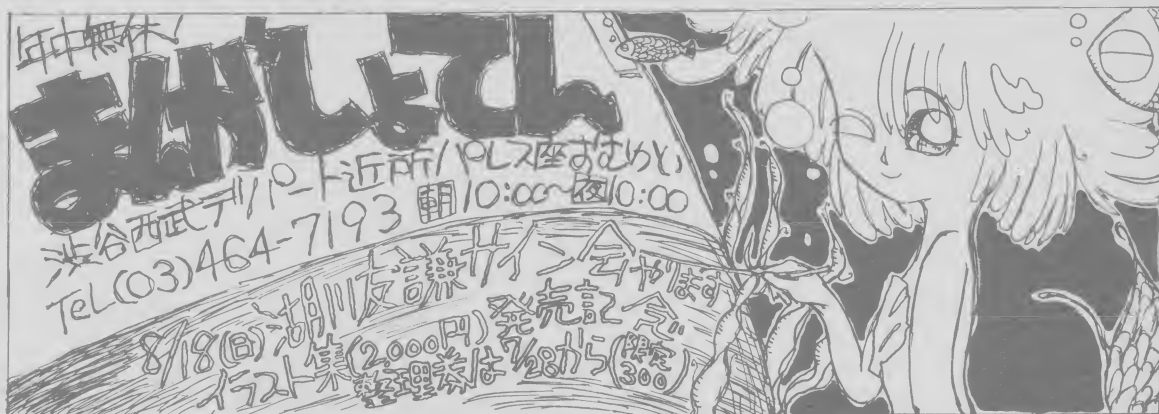 年中無休!
まんがしょてん
渋谷西武デパート近所パレス座おむかい
TEL(03)464-7193 朝10:00〜夜10:00
8/18(日)湖川友謙サイン会やります
イラスト集(2,000円)発売記念
整理券は7/28から(限定300)